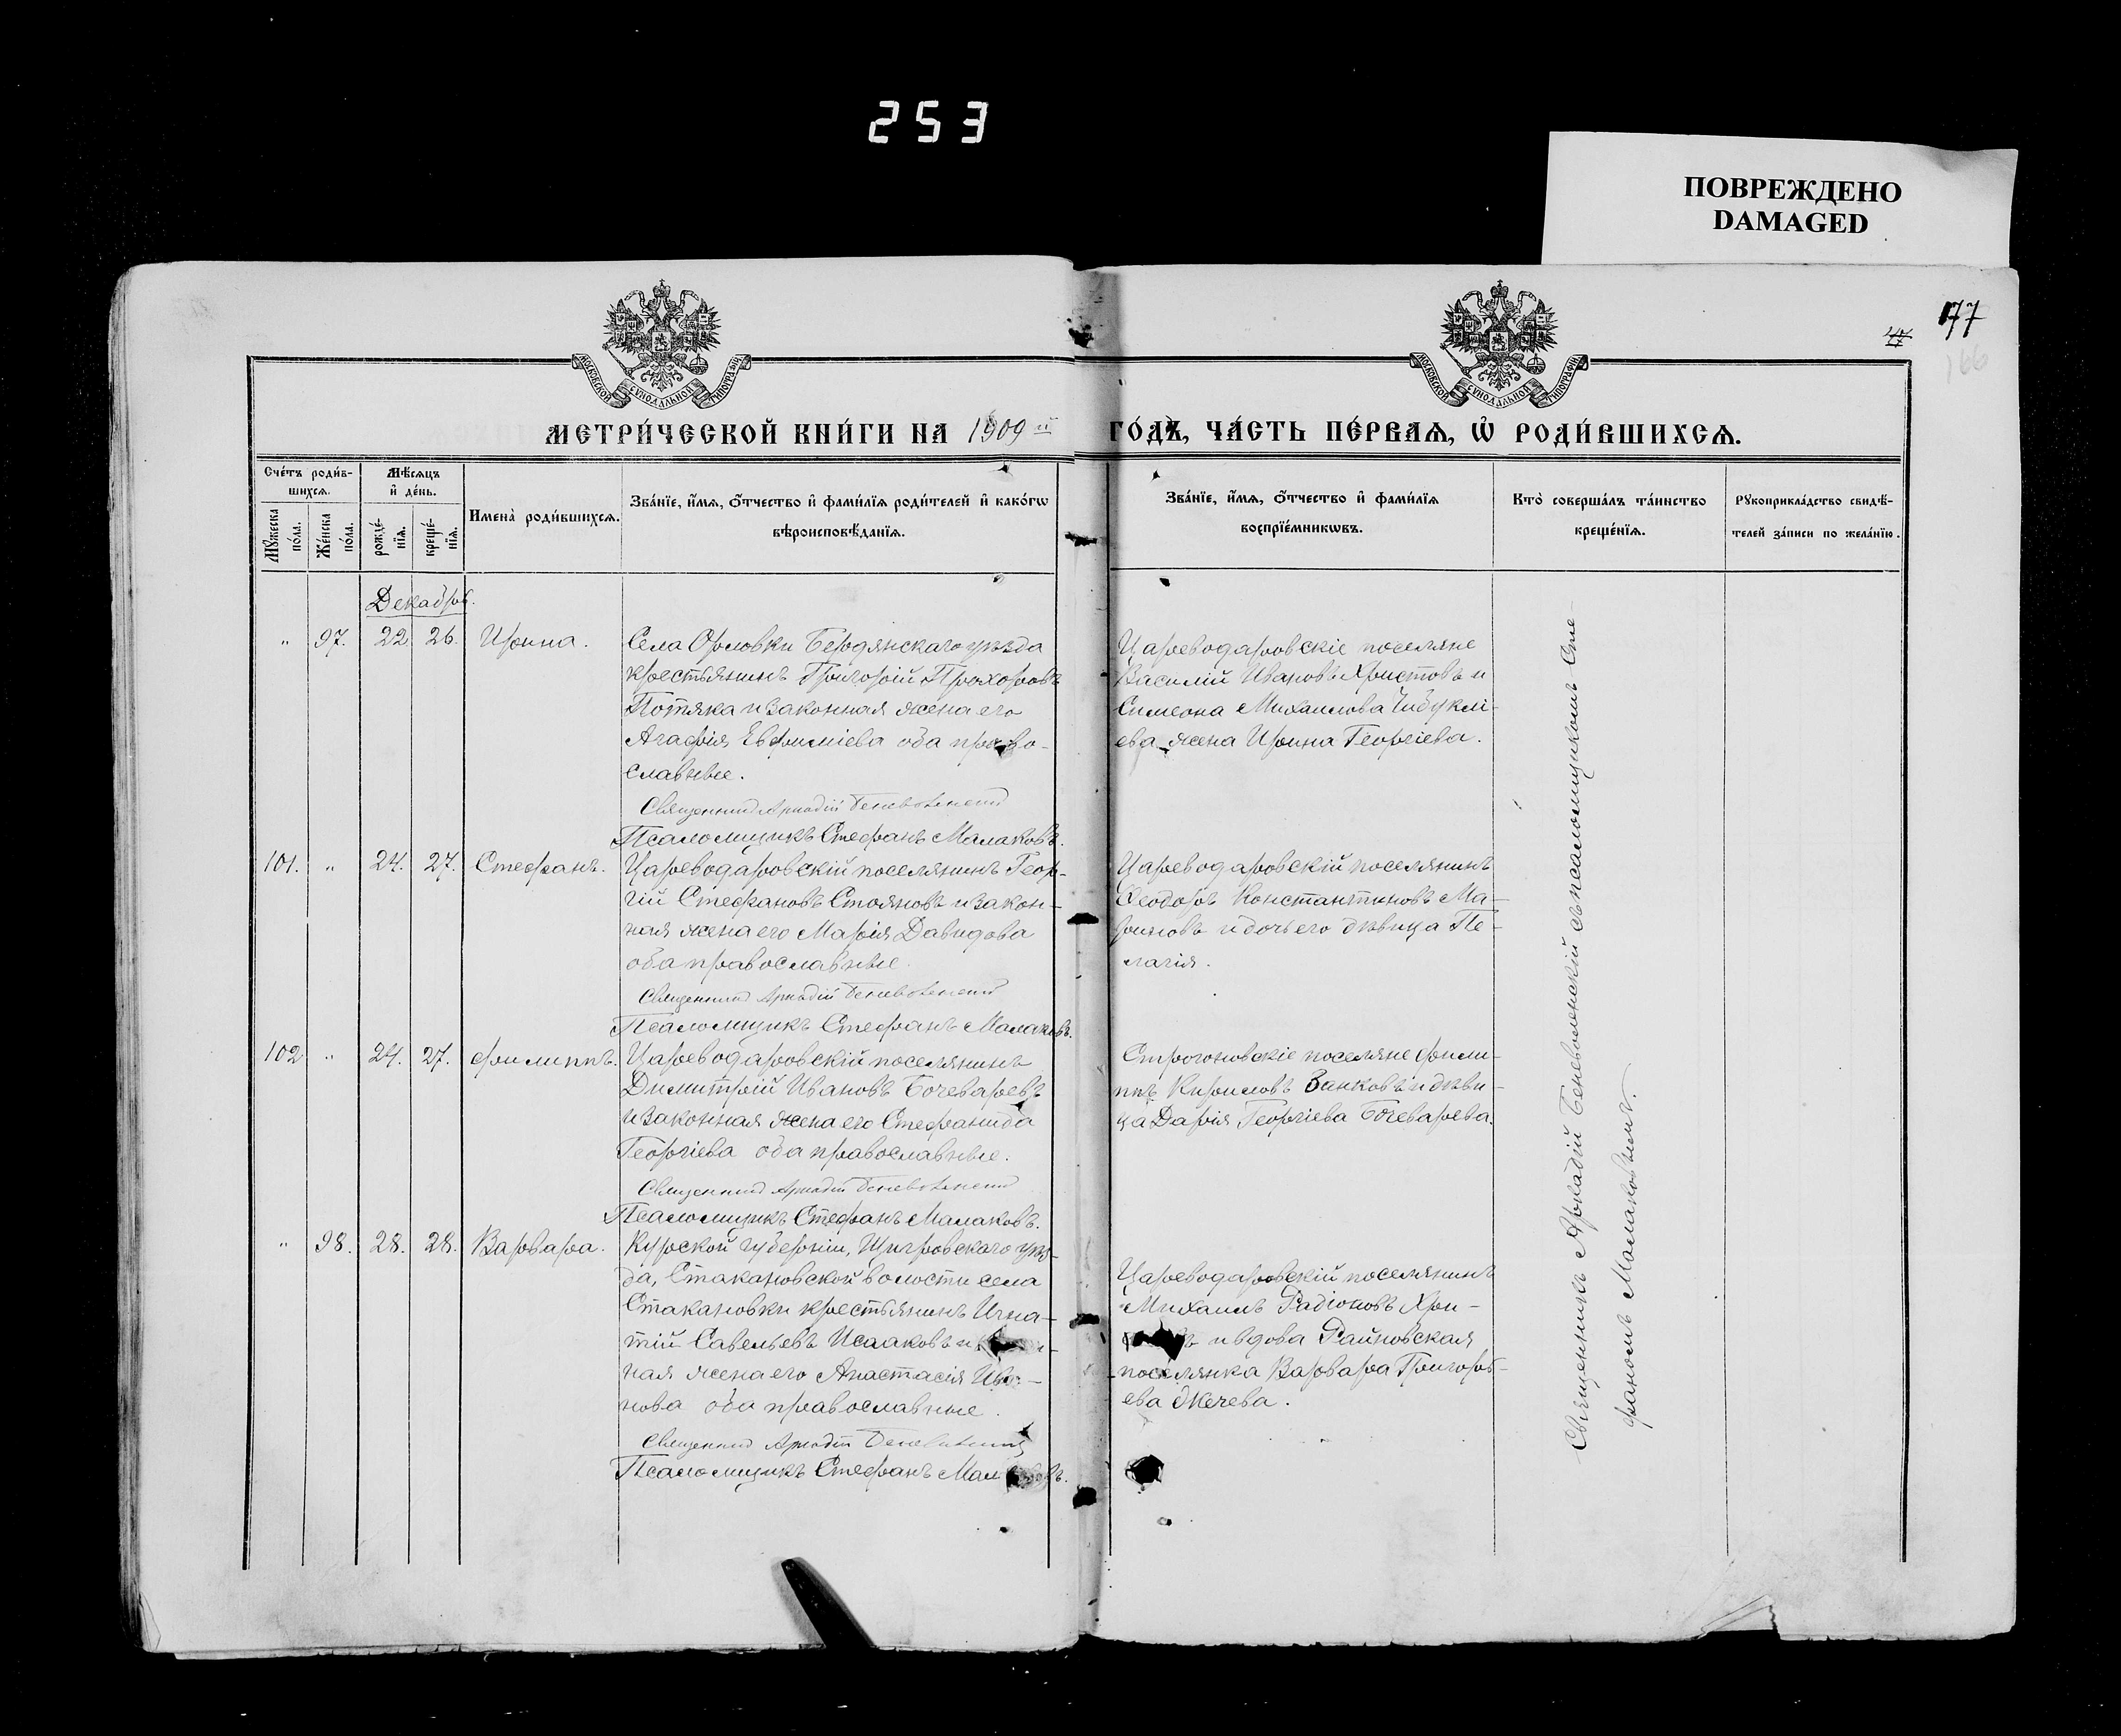 253
ПОВРЕЖДЕНО
DAMAGED
177
МОСКОВСКОЙ СѴНОДАЛЬНОЙ ТИПОГРАФІИ
МОСКОВСКОЙ СѴНОДАЛЬНОЙ ТИПОГРАФІИ
МЕТРИ́ЧЕСКОЙ КНИ́ГИ НА 1909 й ГО́ДЪ, ЧА́СТЬ ПЕ́РВАѦ, Ѡ҆ РОДИ́ВШИХСѦ.
Сче́тъ роди́в-
шихсѧ.
Мѣ́сѧцъ
и҆ де́нь.
Мꙋ́жеска по́ла.
Же́нска по́ла.
рожде́-
нїѧ.
креще́-
нїѧ.
Имена̀ роди́вшихсѧ.
Зва́нїе, и҆́мѧ, ѻ҆́тчество и҆ фами́лїѧ роди́телей и҆ како́гѡ
вѣроисповѣ́данїѧ.
Зва́нїе, и҆́мѧ, ѻ҆́тчество и҆ фами́лїѧ
воспрїе́мникѡвъ.
Кто̀ соверша́лъ та́инство
креще́нїѧ.
Рꙋкоприкла́дство свидѣ́-
телей за́писи по жела́нїю.
Декабрь.
" 97. 22 26. Ирина.
Села Орловки Бердянскаго уѣзда
крестьянинъ Григорій Прохоровъ
Потяка и законная жена его
Агафія Евфиміева оба право-
славные.
Священникъ Аркадій Беневоленскій
Псаломщикъ Стефанъ Малаковъ.
Цареводаровскіе поселяне
Василій Ивановъ Христовъ и
Симеона Михаилова Чибукли-
ева жена Ирина Георгіева.
101. " 24. 27. Стефанъ.
Цареводаровскій поселянинъ Геор-
гій Стефановъ Стояновъ и закон-
ная жена его Марія Давидова
оба православные.
Священникъ Аркадій Беневоленскій
Псаломщикъ Стефанъ Малаковъ.
Цареводаровскій поселянинъ
Ѳеодоръ Константиновъ Ма-
риновъ и дочь его дѣвица Пе-
лагія.
102 " 24. 27. Филиппъ.
Цареводаровскій поселянинъ
Димитрій Ивановъ Бочеваревъ
и законная жена его Стефанида
Георгіева оба православные.
Священникъ Аркадій Беневоленскій
Псаломщикъ Стефанъ Малаковъ.
Строгоновскіе поселяне Фили-
ппъ Кириловъ Занковъ и дѣви-
ца Дарія Георгіева Бочеварева.
" 98. 28. 28. Варвара.
Курской губерніи, Щигровского уѣз-
да, Стакановской волости села
Стакановки крестьянинъ Игна-
тій Савельевъ Исааковъ и
ная жена его Анастасія Ива-
нова оба православные.
Священникъ Аркадій Беневоленскій
Псаломщикъ Стефанъ Малаковъ.
Цареводаровскій поселянинъ
Михаилъ Радіоновъ Хри-
и вдова Райновская
поселянка Варвара Григорь-
ева Экечева.
Священникъ Аркадій Беневоленскій съ псаломщикомъ Сте-
фаномъ Малаковымъ.